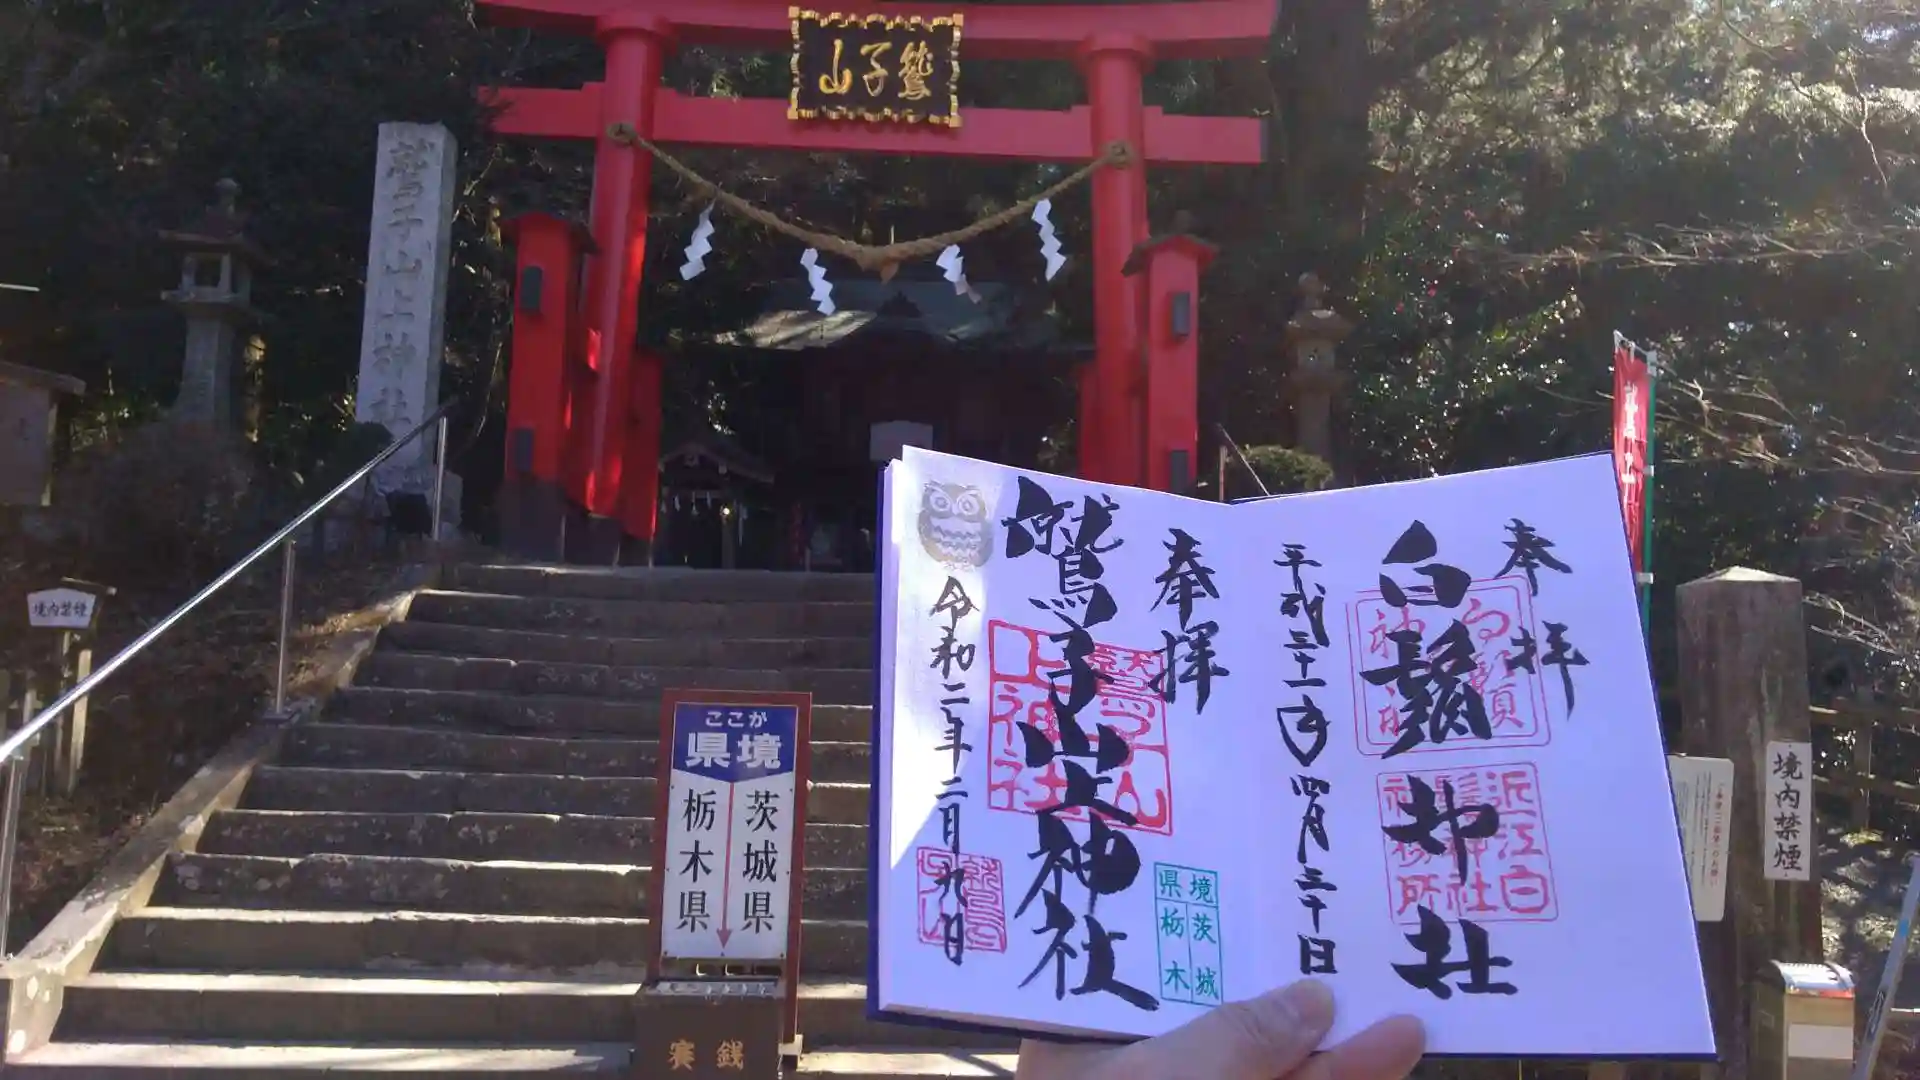 鷲子山
鷲子山上神社
境内禁煙
ここが
県境
茨城県
栃木県
賽銭
奉拝
白鬚神社
平成三十一年四月三十日
近江白
鬚神社
務所
奉拝
鷲子山上神社
令和二年二月九日
鷲子山
上神社
境 茨城
県 栃木
境内禁煙